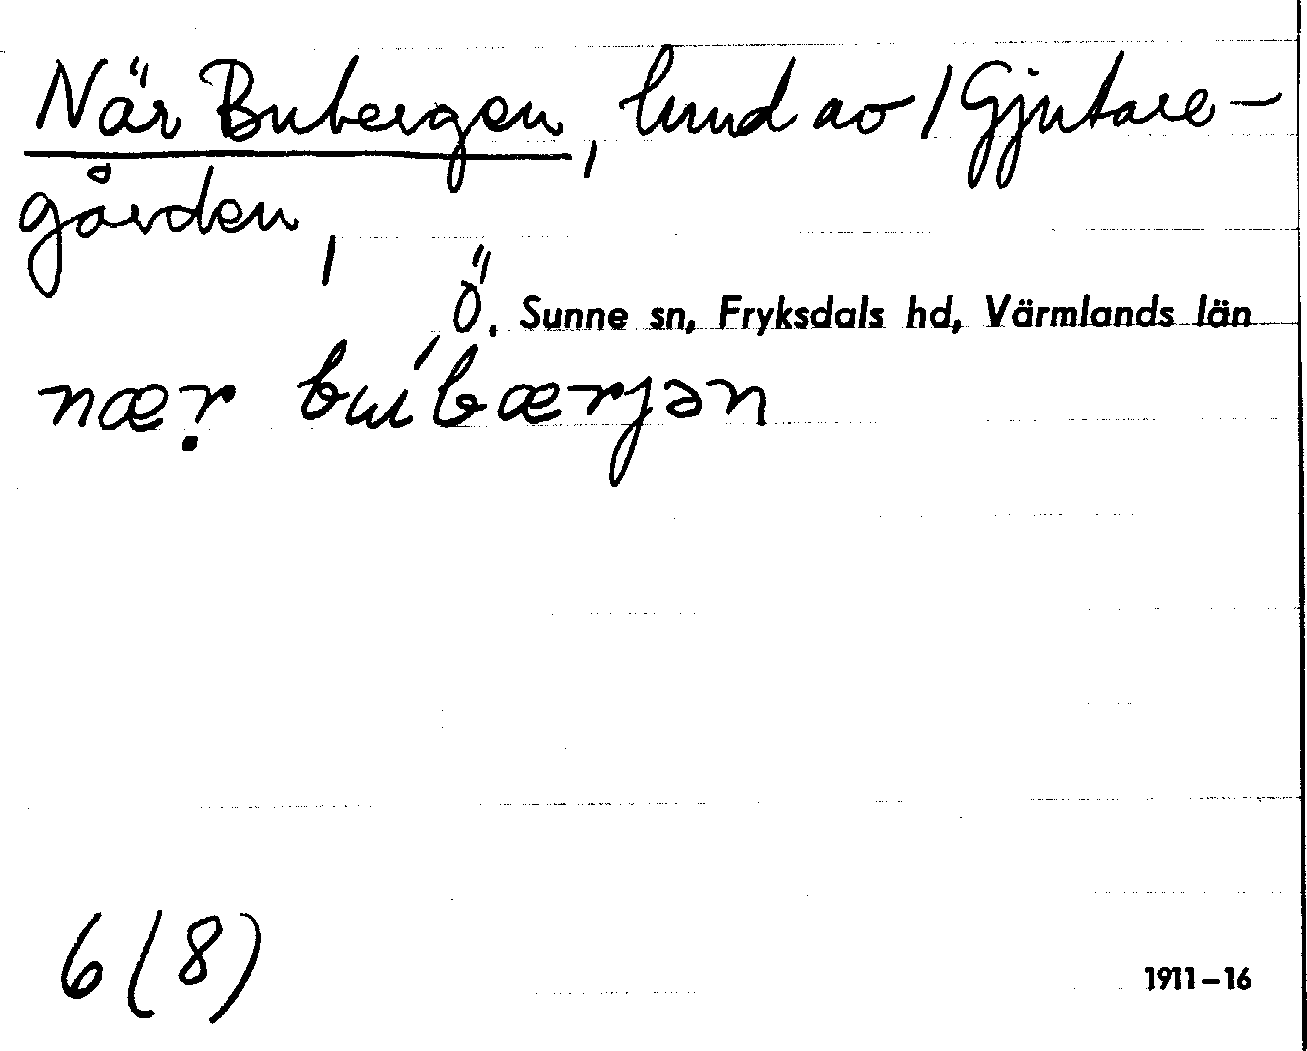 När Bubergen, lund av 1 Gjutare-
gården,
Ö. Sunne sn, Fryksdals hd, Värmlands län
næṛ bu´bærjən
6 (8)
1911–16